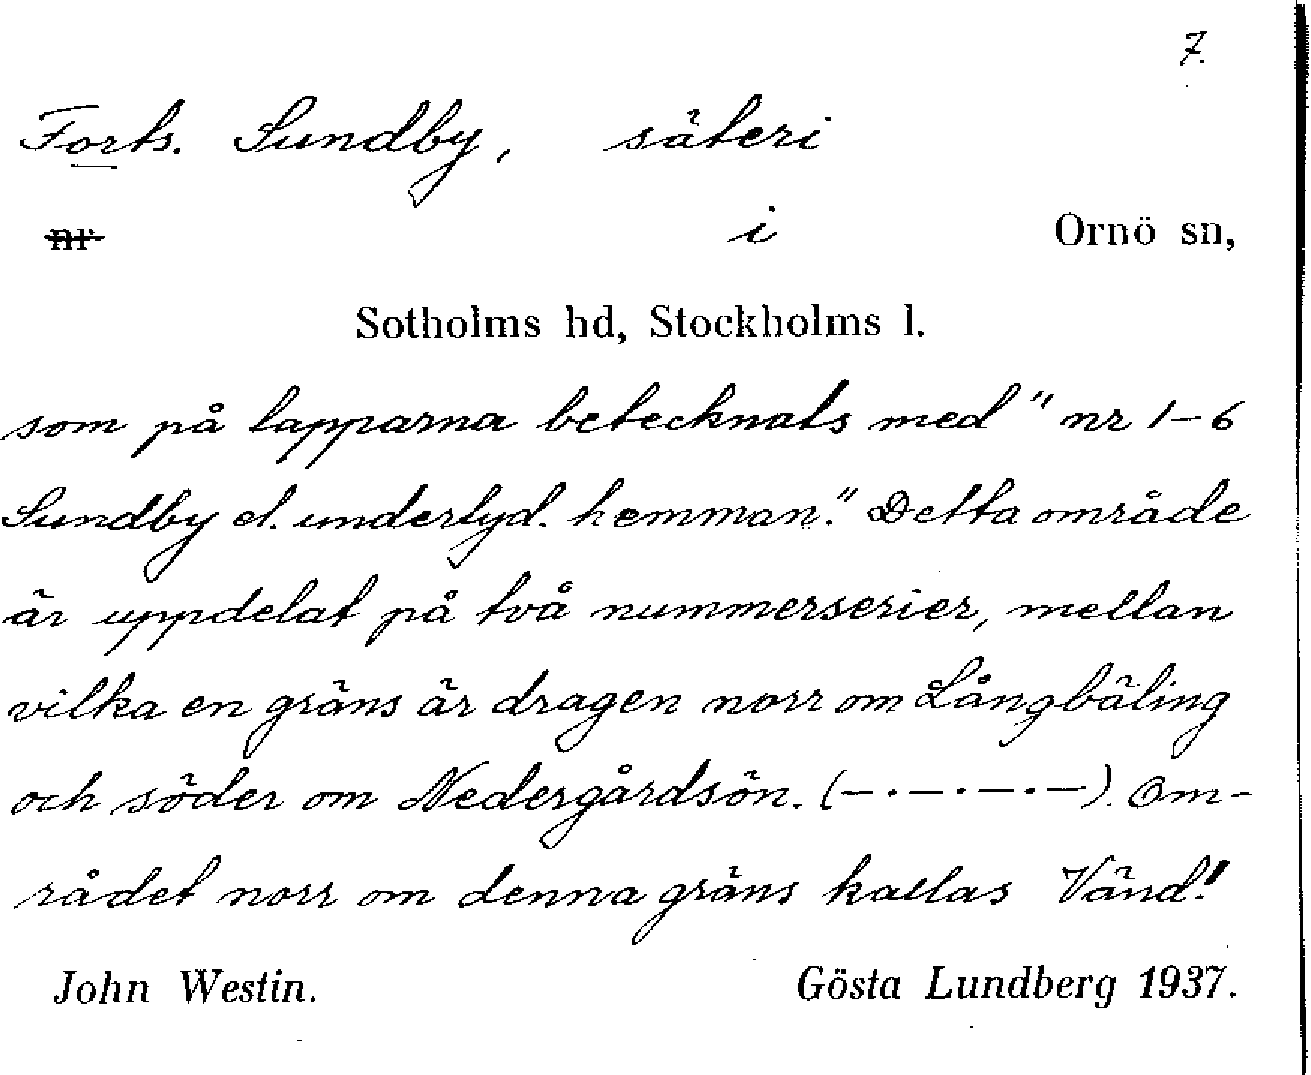 7.
Forts. Sundby, säteri
nr i Ornö sn,
Sotholms hd, Stockholms l.
som på lapparna betecknats med "nr 1–6
Sundby el. underlyd. hemman." Detta område
är uppdelat på två nummerserier, mellan
vilka en gräns är dragen norr om Långbäling
och söder om Nedergårdsön. (—·—·—·—). Om-
rådet norr om denna gräns kallas Vänd!
John Westin. Gösta Lundberg 1937.